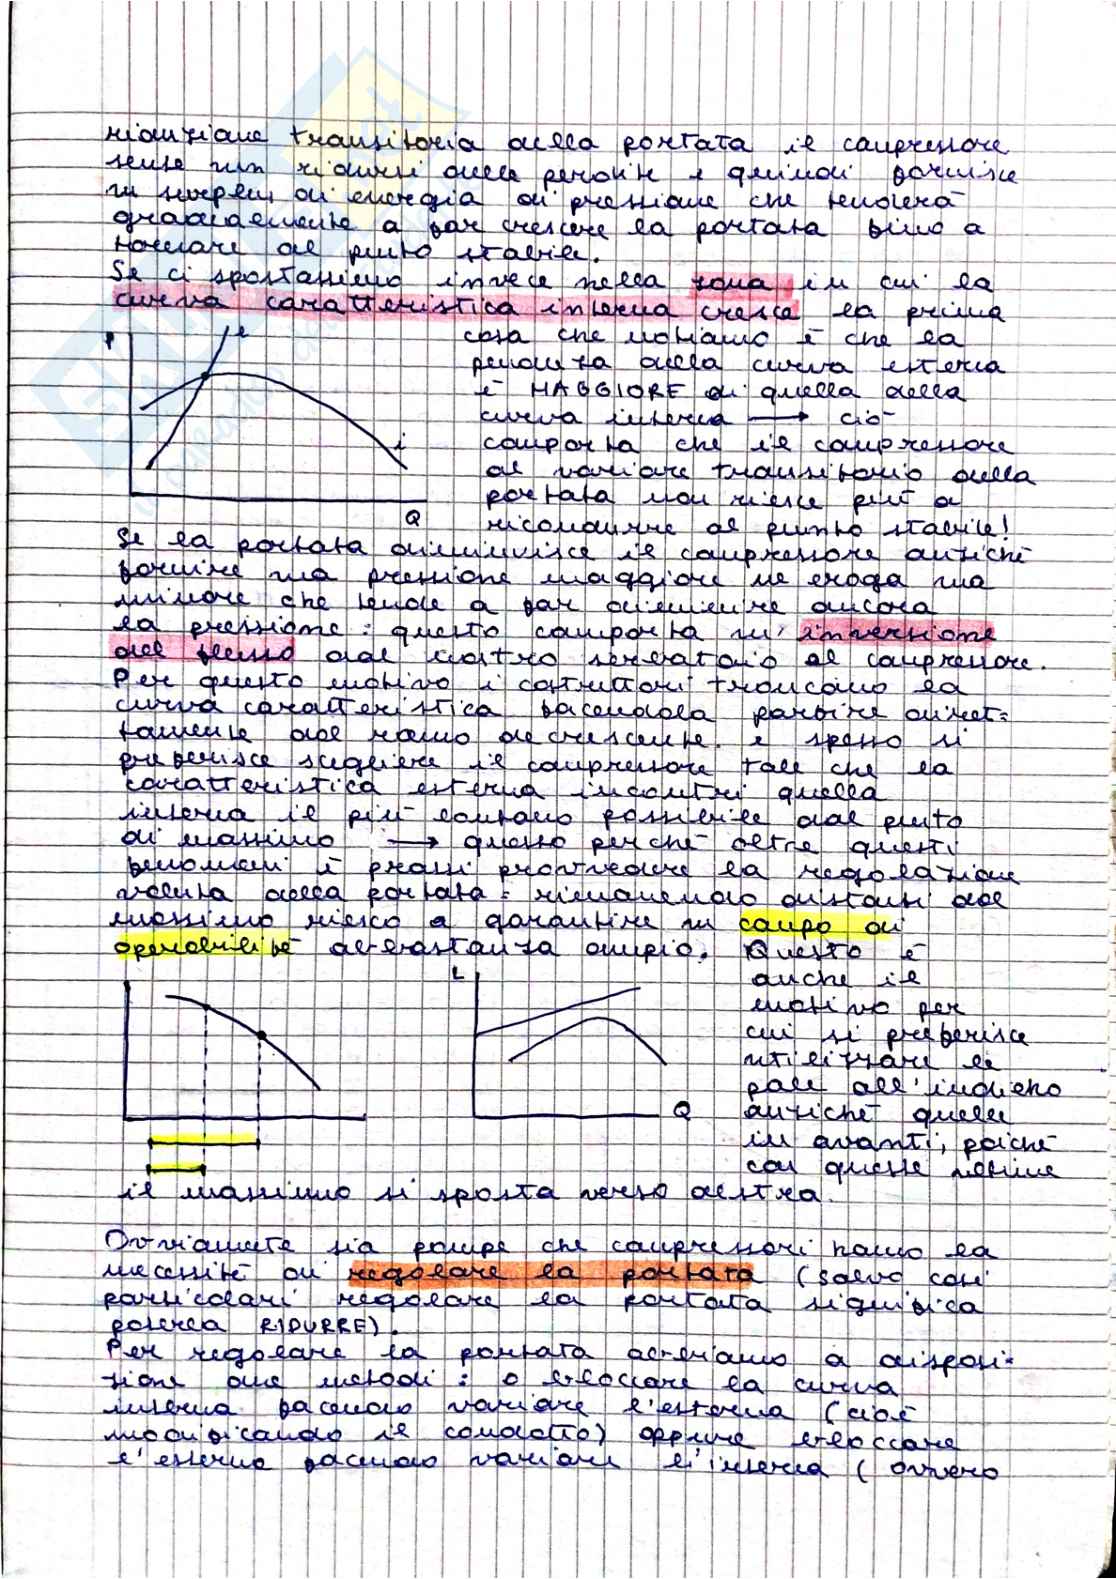 riduzione transitoria della portata il compressore
sente un ridursi delle perdite e quindi fornisce
un surplus di energia di pressione che tenderà
gradualmente a far crescere la portata fino a
tornare al punto stabile.
Se ci spostassimo invece nella zona in cui la
curva caratteristica interna cresce la prima
P
e
cosa che notiamo è che la
pendenza della curva esterna
è MAGGIORE di quella della
curva interna → ciò
i
comporta che il compressore
al variare transitorio della
portata non riesce più a
Q
ricondurre al punto stabile!
Se la portata diminuisce il compressore anziché
fornire una pressione maggiore ne eroga una
minore che tende a far diminuire ancora
la pressione: questo comporta un'inversione
del flusso dal nostro serbatoio al compressore.
Per questo motivo i costruttori troncano la
curva caratteristica facendola partire diret=
tamente dal ramo decrescente. e spesso si
preferisce scegliere il compressore tale che la
caratteristica esterna incontri quella
interna il più lontano possibile dal punto
di massimo → questo perché oltre questi
fenomeni è prassi prevedere la regolazione
voluta della portata: rimanendo distanti dal
massimo riesco a garantire un campo di
operabilità abbastanza ampio. Questo è
L
anche il
motivo per
cui si preferisce
utilizzare le
pale all'indietro
Q
anziché quelle
in avanti, poiché
con queste ultime
il massimo si sposta verso destra.
Ovviamente sia pompe che compressori hanno la
necessità di regolare la portata (salvo casi
particolari regolare la portata significa
poterla RIDURRE).
Per regolare la portata abbiamo a disposi=
zione due metodi: o bloccare la curva
interna facendo variare l'esterna (cioè
modificando il condotto) oppure bloccare
l'esterna facendo variare l'interna (ovvero